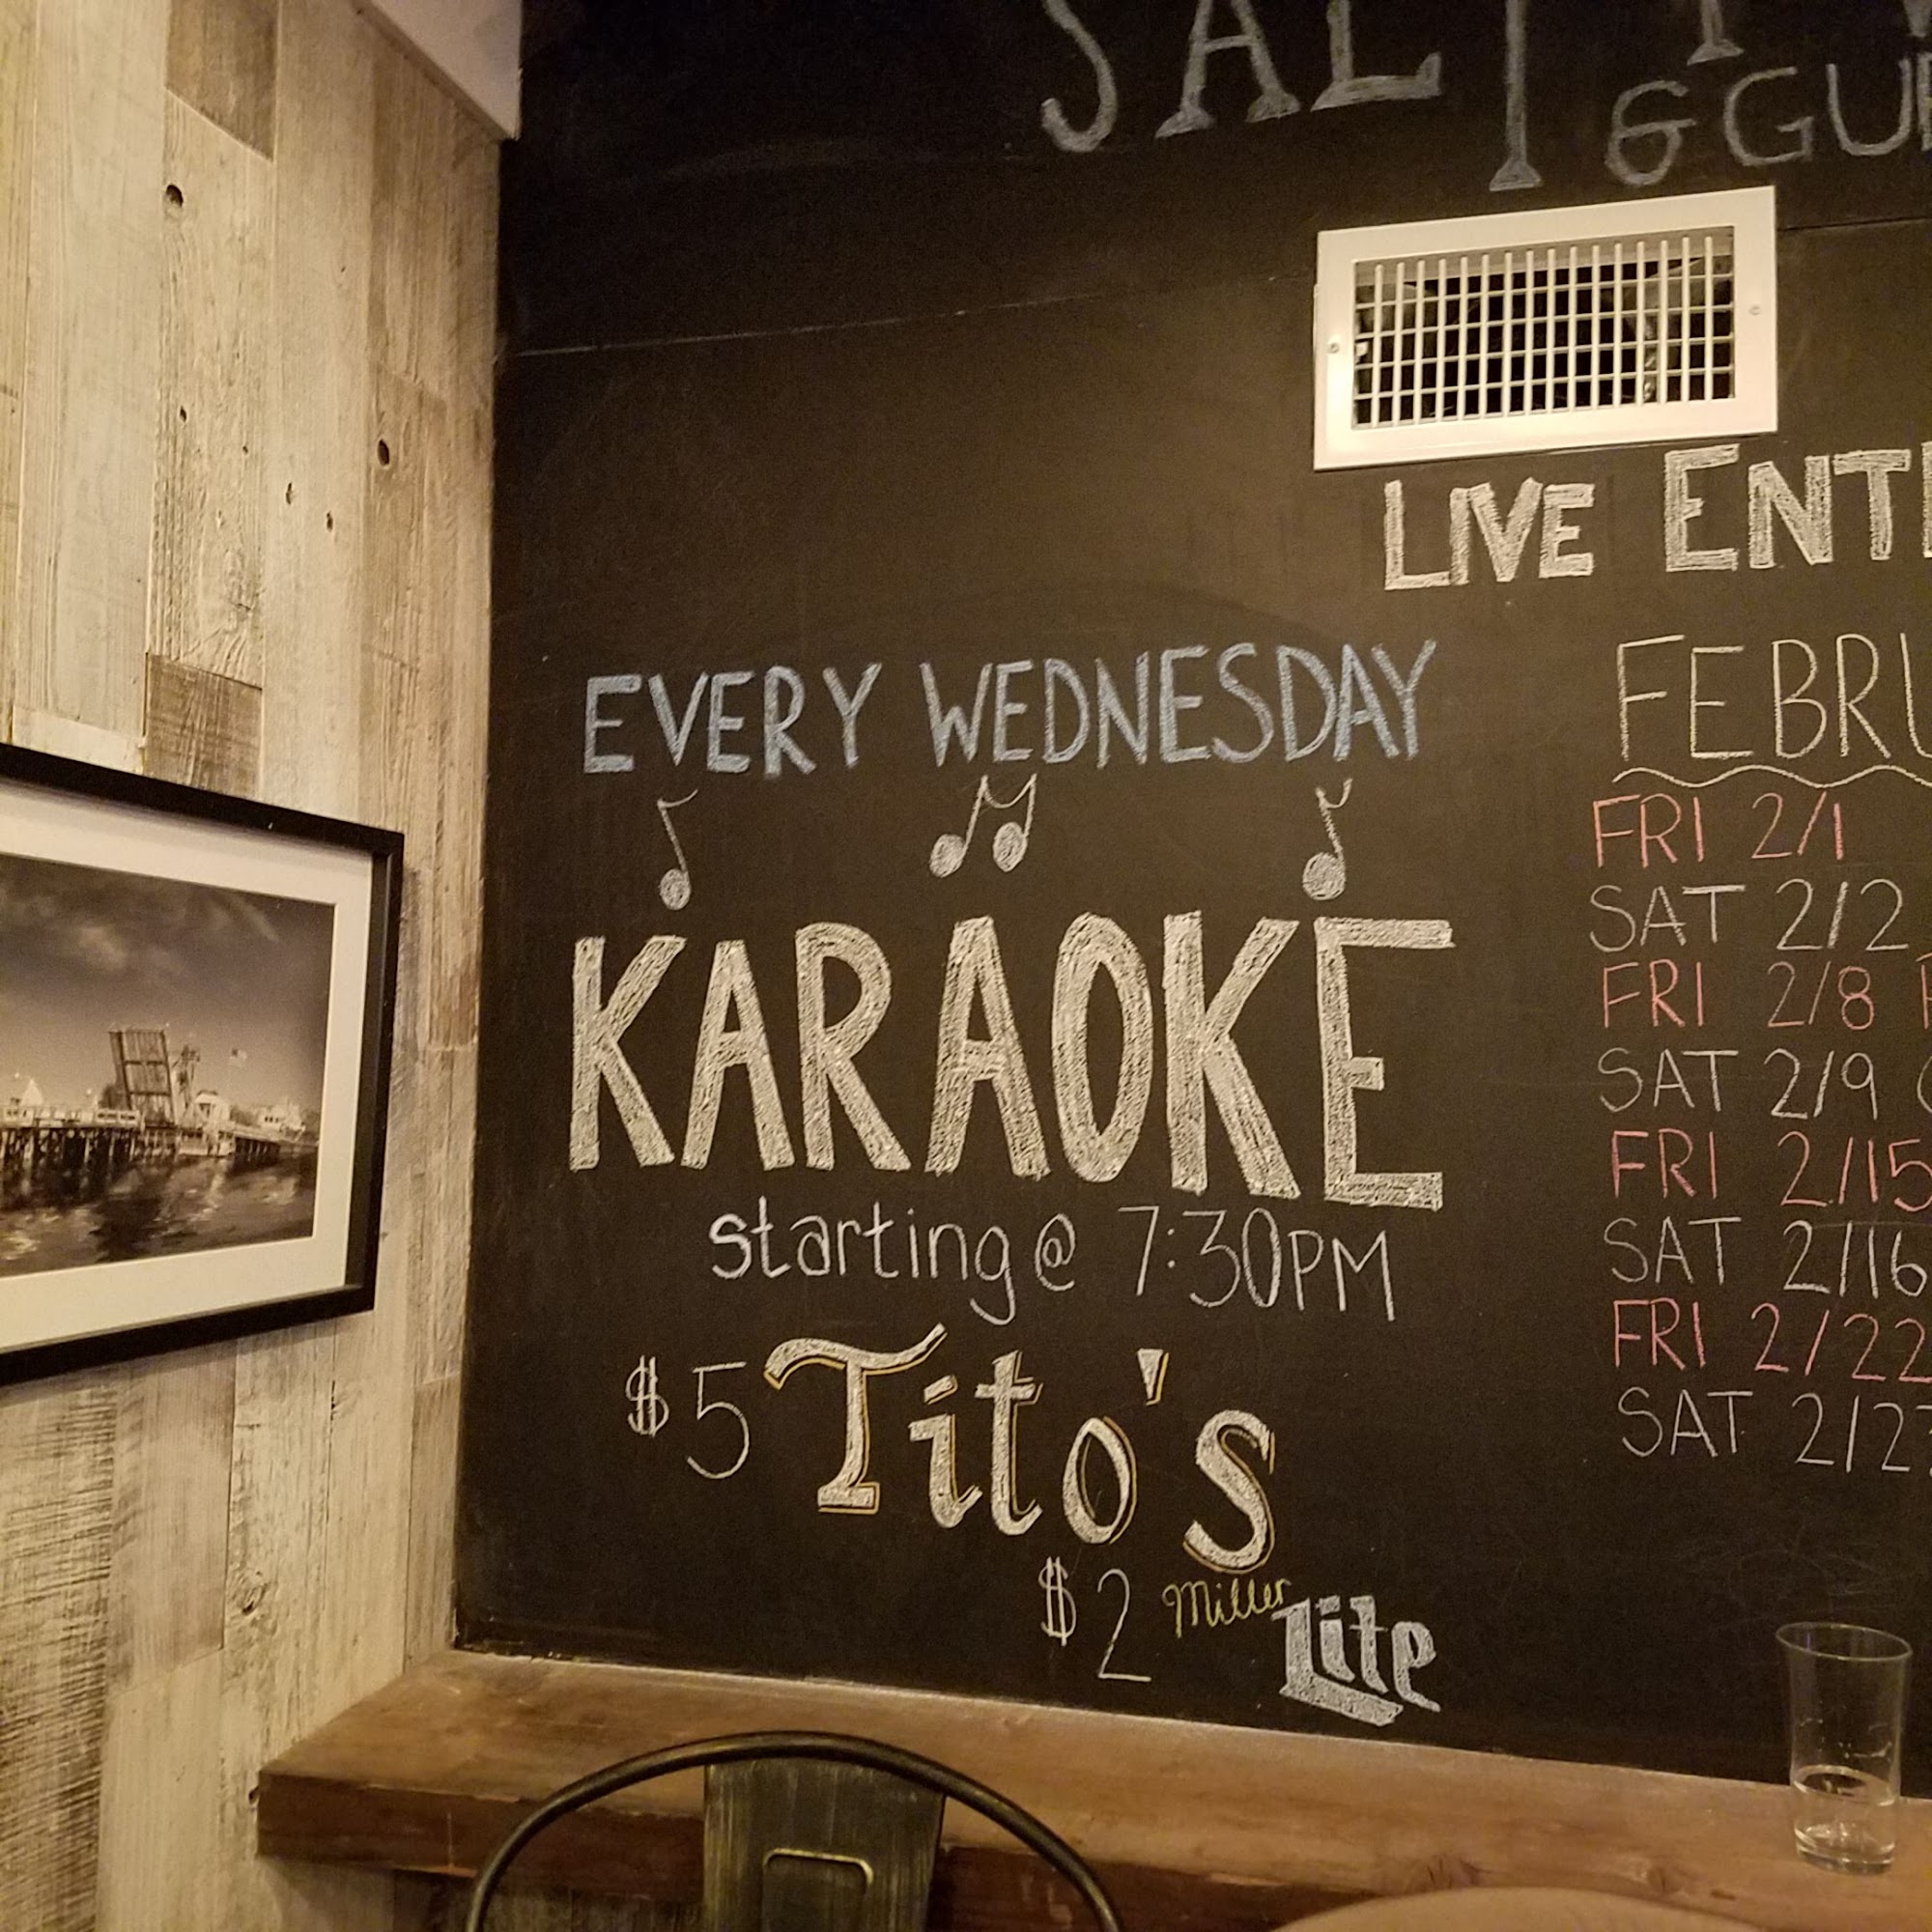 SALTY
& GU
LIVE ENT
EVERY WEDNESDAY
KARAOKE
starting @ 7:30PM
$5 Tito's
$2 Miller Lite
FEBRU
FRI 2/1
SAT 2/2
FRI 2/8
SAT 2/9
FRI 2/15
SAT 2/16
FRI 2/22
SAT 2/2